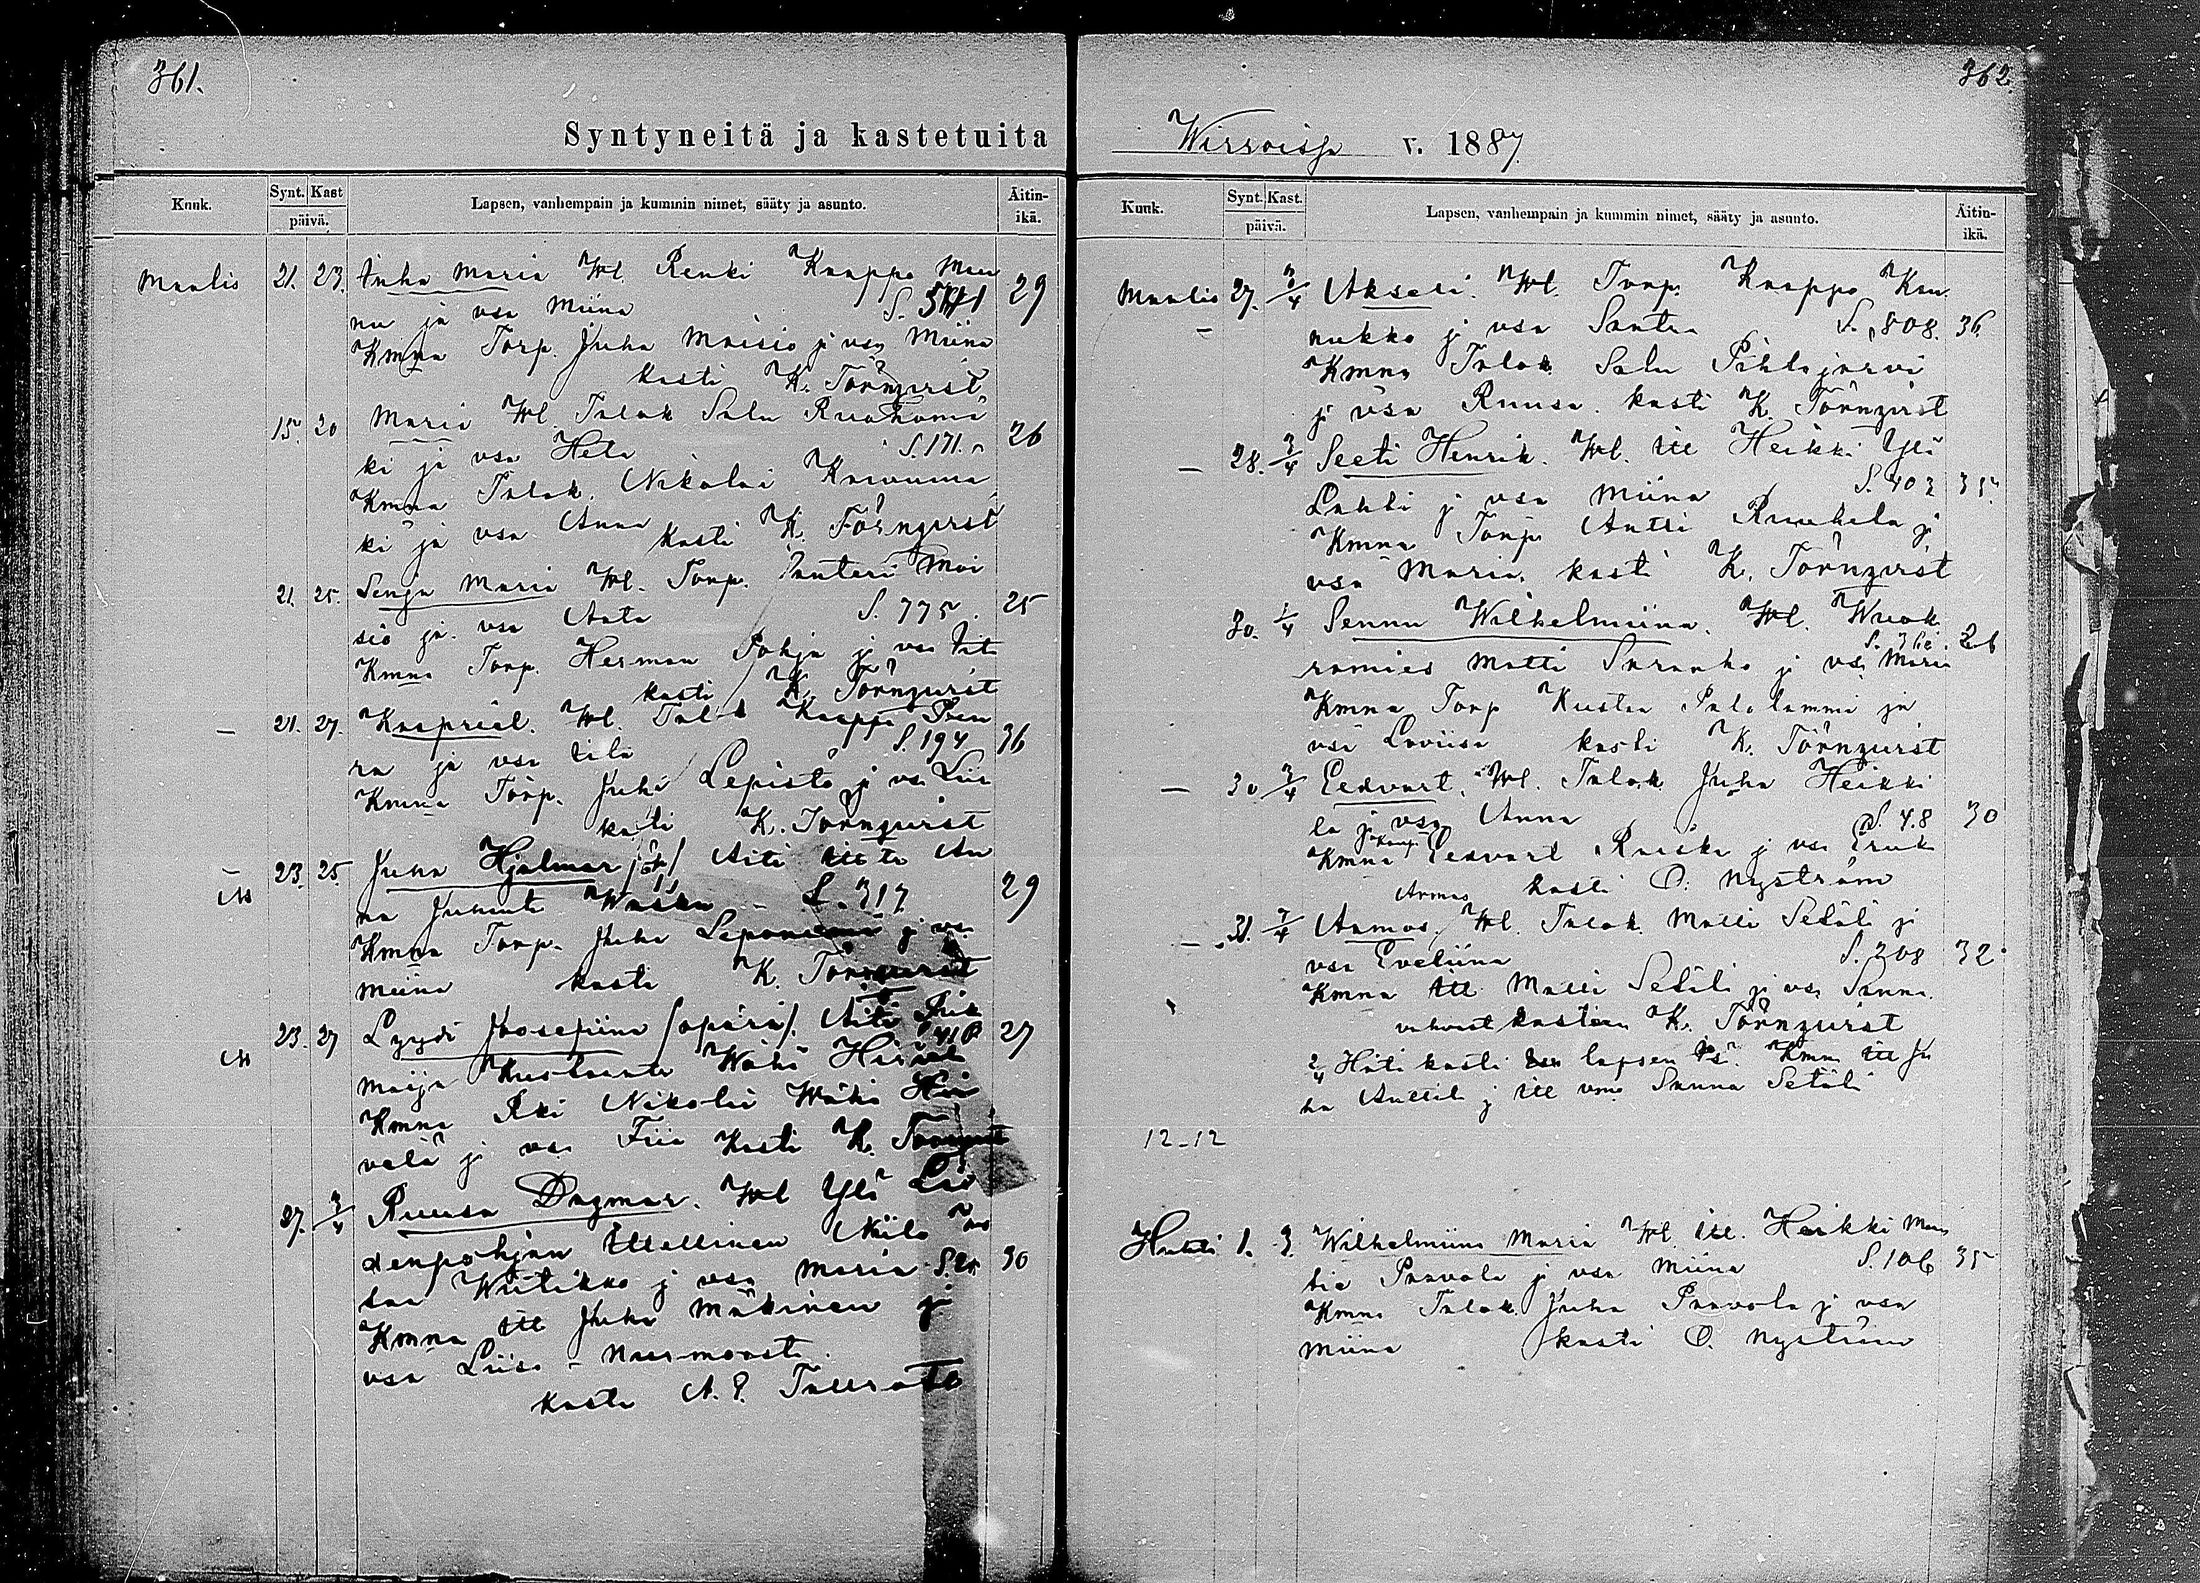 361.
Syntyneitä ja kastetuita
Kuuk.
Synt. Kast
päivä.
Lapsen, vanhempain ja kummin nimet, sääty ja asunto.
Äitin-
ikä.
Maalis 21. 23. Juha Maria Wl. Renki Kaappo Man 29
nu ja vsa Miina S.
Kmna Torp. Juha Moisio j vsa Miina
kasti K. Törnqvist
15. 20 Maria Wl. Talok Salu Ruokomä 26
ki ja vsa Heta S. 171.
Kmna Talok. Nikolai Kaivumä
ki ja vsa Anna kasti K. Törnqvist
21. 25. Senja Maria Wl. Torp. Santeri Moi 25
sio ja vsa S. 775.
Kmna Torp. Herman Pohja j vsa
kasti K. Törnqvist
– 21. 27. Kaapriel. Wl. Talok Kaappo Pen 36
ra ja vsa S. 194
Kmna Torp. Juha Lepistö j vsa Lii
kasti K. Törnqvist
23. 25. Juha Hjalmar Äiti Itta An
na Juhonta S. 317 29
Kmna Torp. Juha j vsa
Miina kasti K. Törnqvist
23. 27 Lyydi Joosefiina /äpärä/. Äiti 27
Maija Kustaanta Wähä
Kmna Rki Nikolai Wähä Hii
velä j vsa Fiia kasti K. Törnqvist
27. 3/4 Ruusa Dagmar. Wl Ylä
denpohjan Itsellinen Niilo
Wiitikko j vsa Maria 30
Kmna Itl Juha Mäkinen j
vsa Liisa – Nurmoosta.
kasti
362.
Wirroissa v. 1887
Kuuk.
Synt. Kast.
päivä.
Lapsen, vanhempain ja kummin nimet, sääty ja asunto.
Äitin-
ikä.
Maalis 27. 3/4 Akseli. Wl. Torp. Kaappo Kan
– nukko j vsa Santra S. 808. 36
Kmna Talok Salu Pihlajarvi
j vsa Ruusa. kasti K. Törnqvist
– 28. 3/4 Seeti Henrik. Wl. Itl Heikki Ylä
Lahti j vsa Miina S. 403 35.
Kmna Torp. Antti Ruuhela j
vsa Maria. kasti K. Törnqvist
30. 1/4 Sennu Wilhelmiina. Wl. Wuok
ramies Matti Saranko j vsa Maria 26
Kmna Torp Kustaa Palolammi ja
vsa Loviisa kasti K. Törnqvist
– 30 3/4 Eedvart. Wl. Talok Juha Heikki
la j vsa Anna S. 48 30
Kmna Eedvart Raiski j vsa
kasti O. Nyström
Armas
– 31. 7/4 Armas. Wl. Talok. Matti Setäli j
vsa Eveliina S. 208 32.
Kmna Itl Matti Setäli j vsa Sanna
vahvist kasteen K. Törnqvist
2/4 Häti kasti lapsen Kmna Itl Ju
ha Anttil j Itl vmo Sanna Setäli
12 – 12
Huhti 1. 3. Wilhelmiina Maria Wl. Itl. Heikki Man
tia Paavola j vsa Miina S. 106 35
Kmna Talok. Juha Paavola j vsa
Miina kasti O. Nyström